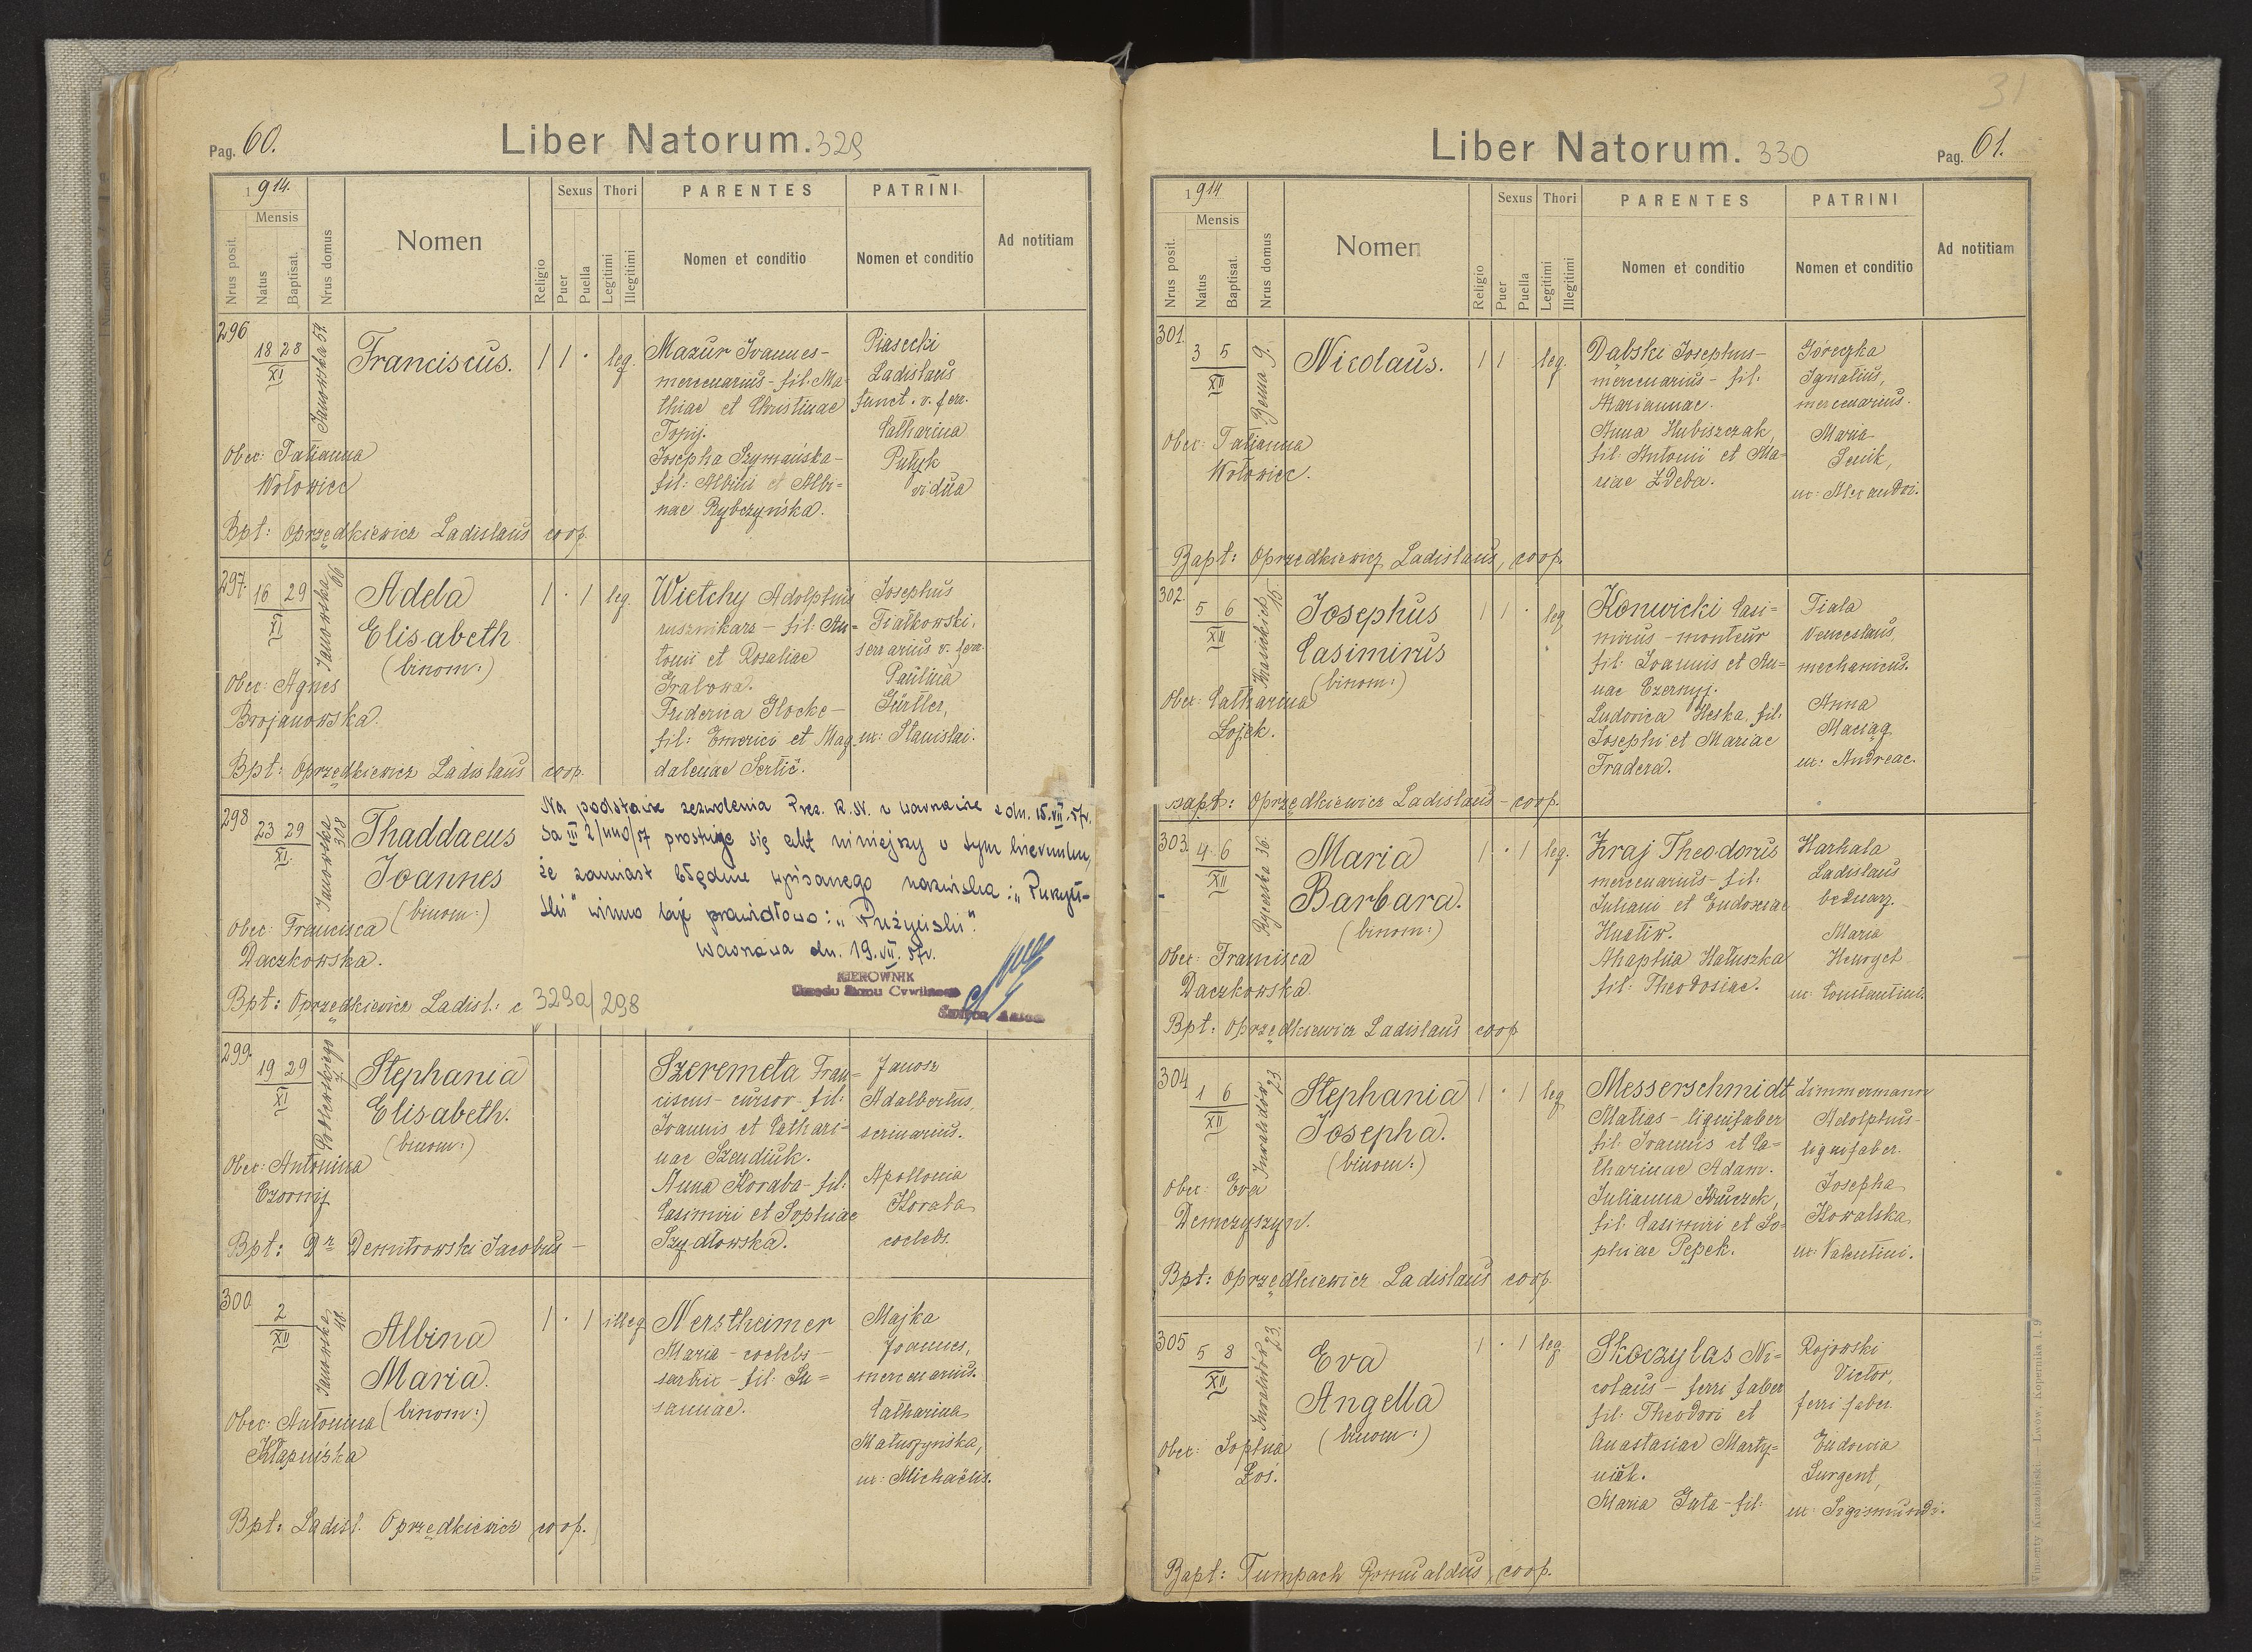 Pag. 60.
Liber Natorum. 329
1914.
Mensis
Nrus posit.
Natus
Baptisat.
Nrus domus
Nomen
Religio
Sexus
Puer
Puella
Thori
Legitimi
Illegitimi
PARENTES
Nomen et conditio
PATRINI
Nomen et conditio
Ad notitiam
296
18 28
XI
Janowska 57.
Franciscus.
1 1 · leg.
Mazur Joannes -
mercenarius - fil. Ma-
thiae et Christinae
Topij.
Josepha Szymańska -
fil: Albini et Albi=
nae Rybczyńska.
Piasecki
Ladislaus
funct. v. ferr.
Catharina
Putyk
vidua
Obec: Tatianna
Wołowiec
Bpt: Oprzędkiewicz Ladislaus coop.
297.
16 29
XI
Janowska 66
Adela
Elisabeth
(binom:)
1 · 1 leg.
Wietchy Adolphus
rusznikarz - fil: An=
tonii et Rosaliae
Grabowa.
Friderica Glocke -
fil: Emerici et Mag
dalenae Serlič.
Josephus
Fiałkowski,
serrarius v. ferr.
Paulina
Gürtler,
ux: Stanislai.
Obec: Agnes
Brojanowska.
Bpt: Oprzędkiewicz Ladislaus coop.
298
23 29
XI.
Janowska 308
Thaddaeus
Joannes
(binom:)
Obec: Francisca
Daczkowska.
Bpt: Oprzędkiewicz Ladisl.: c
Na podstawie zezwolenia Prez. R.N. w Warszawie z dn. 15.VII.57r.
Sa III 2/1110/57 prostuje się akt niniejszy w tym kierunku,
że zamiast błędnie wpisanego nazwiska: „
" winno być prawidłowo: „
Warszawa dn. 19.VII.57r.
KIEROWNIK
Urzędu Stanu Cywilnego
329a/298
299.
19 29
XI
Stephania
Elisabeth.
(binom:)
Szeremeta Fran=
ciscus - cursor - fil:
Joannis et Cathari=
nae Szendiuk.
Anna Koraba - fil:
Casimiri et Sophiae
Szydłowska.
Janosz
Adalbertus,
scriniarius.
Apollonia
Koraba
coelebs.
Obec: Antonina
Czornij
Bpt: Dr Demitrowski Jacobus -
300
2
XII
Janowska 48.
Albina
Maria.
(binom:)
1 · 1 illeg
Nerstheimer
Maria - coelebs -
sartrix - fil: Su=
sannae.
Majka
Joannes,
mercenarius.
Catharina
Matuszyńska,
ux: Michaelis.
Obec: Antonina
Kłapuiska
Bpt: Ladisl. Oprzędkiewicz coop.
31
Liber Natorum. 330
Pag. 61.
1914
Mensis
Nrus posit.
Natus
Baptisat.
Nrus domus
Nomen
Religio
Sexus
Puer
Puella
Thori
Legitimi
Illegitimi
PARENTES
Nomen et conditio
PATRINI
Nomen et conditio
Ad notitiam
301.
3 5
XII
Bema 9.
Nicolaus.
1 1 leg.
Dąbski Josephus -
mercenarius - fil.
Mariannae.
Anna Hubiszczak,
fil: Antonii et Ma-
nae Zdeba.
Góreczka
Ignatius,
mercenarius.
Maria
Senik,
ux: Alexandri.
Obec: Tatianna
Wołowiec.
Bapt: Oprzędkiewicz Ladislaus, coop.
302.
5 6
XII
15
Josephus
Casimirus
(binom:)
1 1 · leg
Konwicki Casi=
mirus - monteur
fil: Joannis et An=
nae Czernyj.
Ludovica Heska, fil.
Josephi et Mariae
Fradera.
Fiala
Venceslaus,
mechanicus.
Anna
Maciąg
ux: Andreae.
Obec: Catharina
Łojek.
Bapt: Oprzędkiewicz Ladislaus - coop.
303.
4 6
XII
Rycerska 36.
Maria
Barbara.
(binom:)
1 · 1 leg.
Kraj Theodorus
mercenarius - fil:
Juliani et Eudoxiae
Hnatiw.
Ahaphia Hałuszka
fil: Theodosiae.
Harhala
Ladislaus
bednarz.
Maria
Heurget
ux: Constantini.
Obec: Francisca
Daczkowska.
Bpt: Oprzędkiewicz Ladislaus coop
304
1 6
XII
Inwalidów 23
Stephania
Josepha.
(binom:)
1 · 1 leg
Messerschmidt
Matias - lignifaber
fil: Joannis et Ca=
tharinae Adam.
Julianna Kruczek,
fil: Casimiri et So=
phiae Pępek.
Zimmermann
Adolphus -
lignifaber.
Josepha
Kowalska
ux: Valentini.
Obec: Eva
Demczyszyn.
Bpt: Oprzędkiewicz Ladislaus coop.
305
5 8
XII
Inwalidów 23.
Eva
Angella
(binom:)
1 · 1 leg
Skoczylas Ni=
colaus - ferri faber
fil: Theodori et
Anastasiae Marty=
niuk.
Maria Guta - fil:
Rojowski
Victor,
ferri faber.
Eudoxia
Surgent,
ux: Sigismundi.
Obec: Sophia
Łoś.
Bapt: Tumpach Romualdus, coop.
Wincenty Kuczabiński, Lwów, Kopernika l. 9